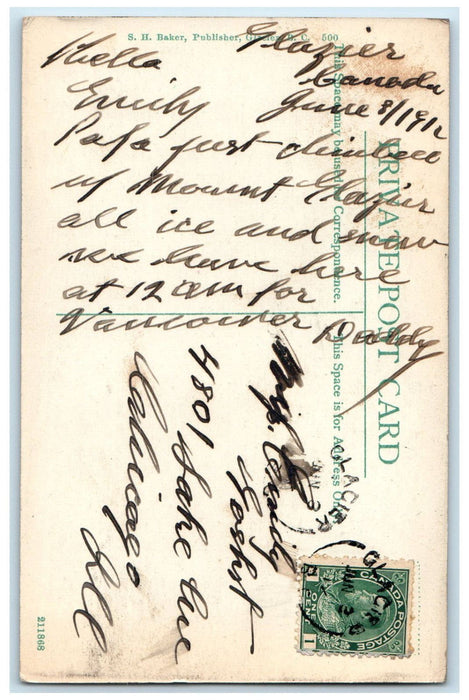 S. H. Baker, Publisher, Glacier, B. C. 500
Glazier
Canada
June 3/1912
Hello
Emily
Papa just climbed
up Mount Glazier
all ice and snow
we leave here
at 12 am for
Vancouver Daddy
PRIVATE POST CARD
This Space may be used for Correspondence.
This Space is for Address Only.
Miss. Emily
4801 Lake Ave
Chicago
Ill
GLACIER
JUN 3
GLACIER
JUN 3
CANADA POSTAGE
1 ONE CENT 1
211868